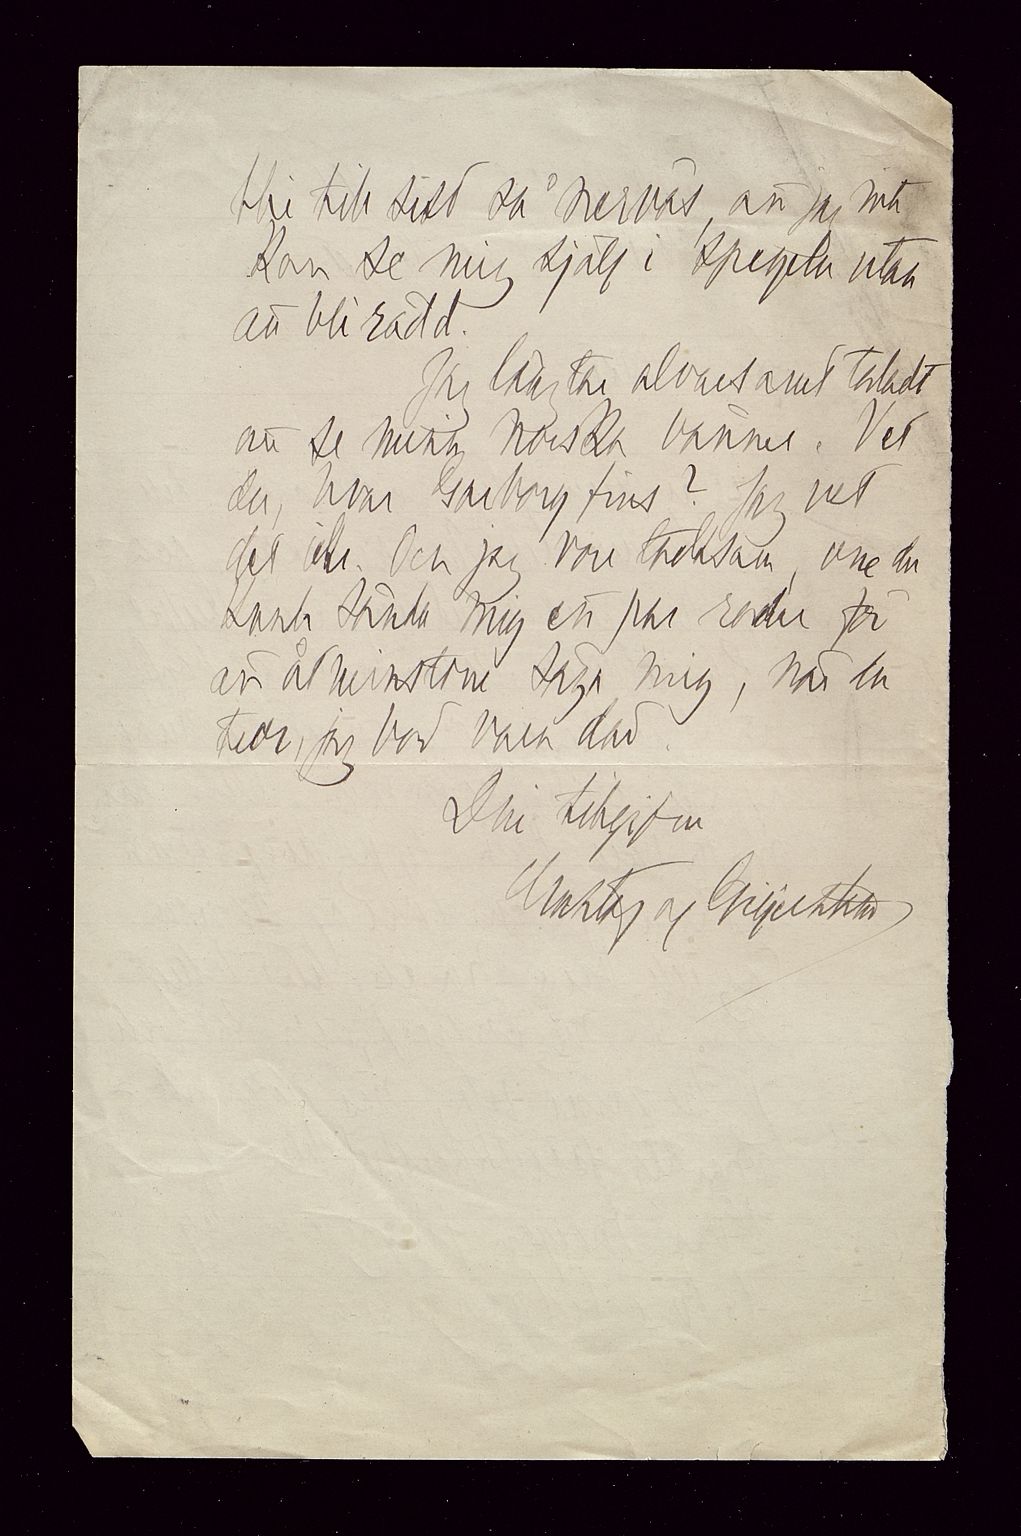 bli till sist så nervös, att jag inte
kan se mig sjelf i spegeln utan
att bli rädd.
Jag längtar alvarsamt
att se mina norska vänner. Vet
du, hvar Garborg fins? Jag vet
det icke. Och jag vore tacksam, om du
kunde sända mig ett par rader för
att åtminstone säga mig, när du
tror, jag bör vara där.
Din tillgifne
Gustaf af Geijerstam